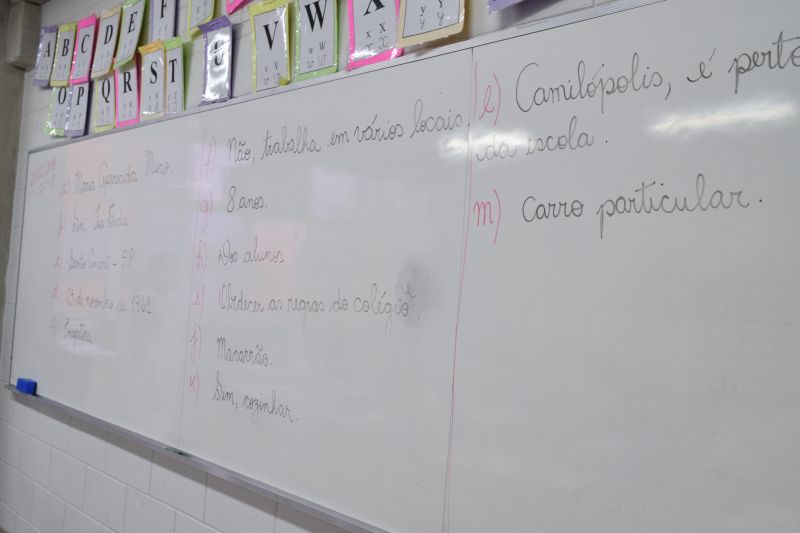 A B C D E F
O P Q R S T U V W X
a) Maria Aparecida Muro.
b) Sim, Tia Cida
c) Santo André - SP
d) 23 de novembro de 1961
e) Inspetora
f) Não, trabalha em vários locais.
g) 8 anos.
h) Dos alunos
i) Obedecer as regras do colégio.
j) Macarrão.
k) Sim, cozinhar.
l) Camilópolis, é perto
da escola.
m) Carro particular.